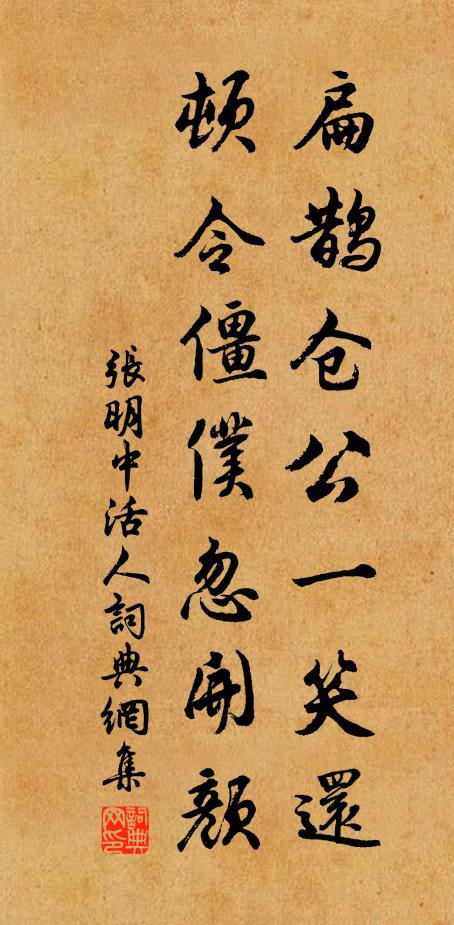 扁鵲仓公一笑還
頓令僵僕忽開顔
張明中活人詞典網集
詞典网印